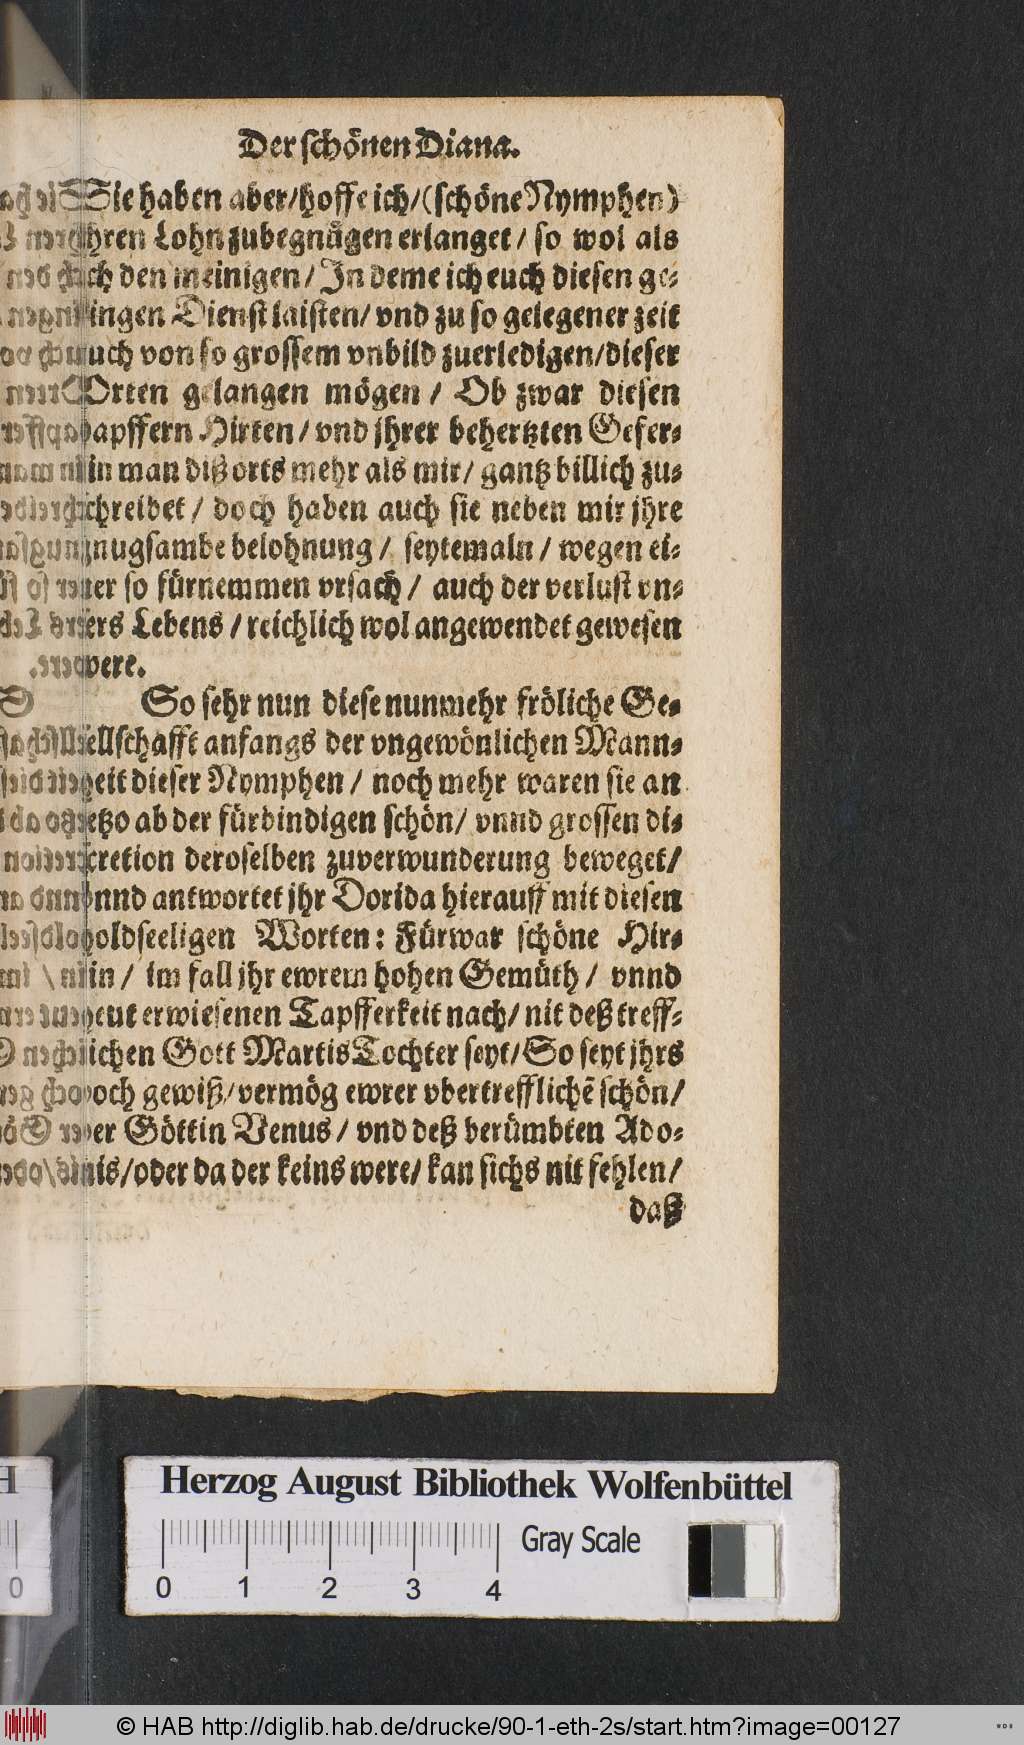 Der schönen Diana.
Sie haben aber/hoffe ich/(schöne Nymphen)
jhren Lohn zubegnügen erlanget/ so wol als
ich den meinigen/ In deme ich euch diesen ge-
ringen Dienst laisten/ vnd zu so gelegener zeit
euch von so grossem vnbild zuerledigen/dieser
Orten gelangen mögen/ Ob zwar diesen
dapffern Hirten/ vnd jhrer behertzten Gefer-
tin man diß orts mehr als mir/ gantz billich zu-
schreibet/ doch haben auch sie neben mir jhre
gnugsambe belohnung/ seytemaln/ wegen ei-
ner so fürnemmen vrsach/ auch der verlust vn-
sers Lebens/ reichlich wol angewendet gewesen
were.
So sehr nun diese nunmehr fröliche Ge-
sellschafft anfangs der vngewönlichen Mann-
heit dieser Nymphen/ noch mehr waren sie an
jetzo ab der fürbindigen schön/ vnnd grossen di-
scretion deroselben zuverwunderung beweget/
vnnd antwortet jhr Dorida hierauff mit diesen
holdseeligen Worten: Fürwar schöne Hir-
tin/ im fall jhr ewrem hohen Gemüth/ vnnd
heut erwiesenen Tapfferkeit nach/ nit deß treff-
lichen Gott Martis Tochter seyt/ So seyt jhrs
doch gewiß/ vermög ewrer vbertrefflichē schön/
der Göttin Venus/ vnd deß berümbten Ado-
nis/oder da der keins were/ kan sichs nit fehlen/
daß
Herzog August Bibliothek Wolfenbüttel
Gray Scale
0 1 2 3 4
© HAB http://diglib.hab.de/drucke/90-1-eth-2s/start.htm?image=00127